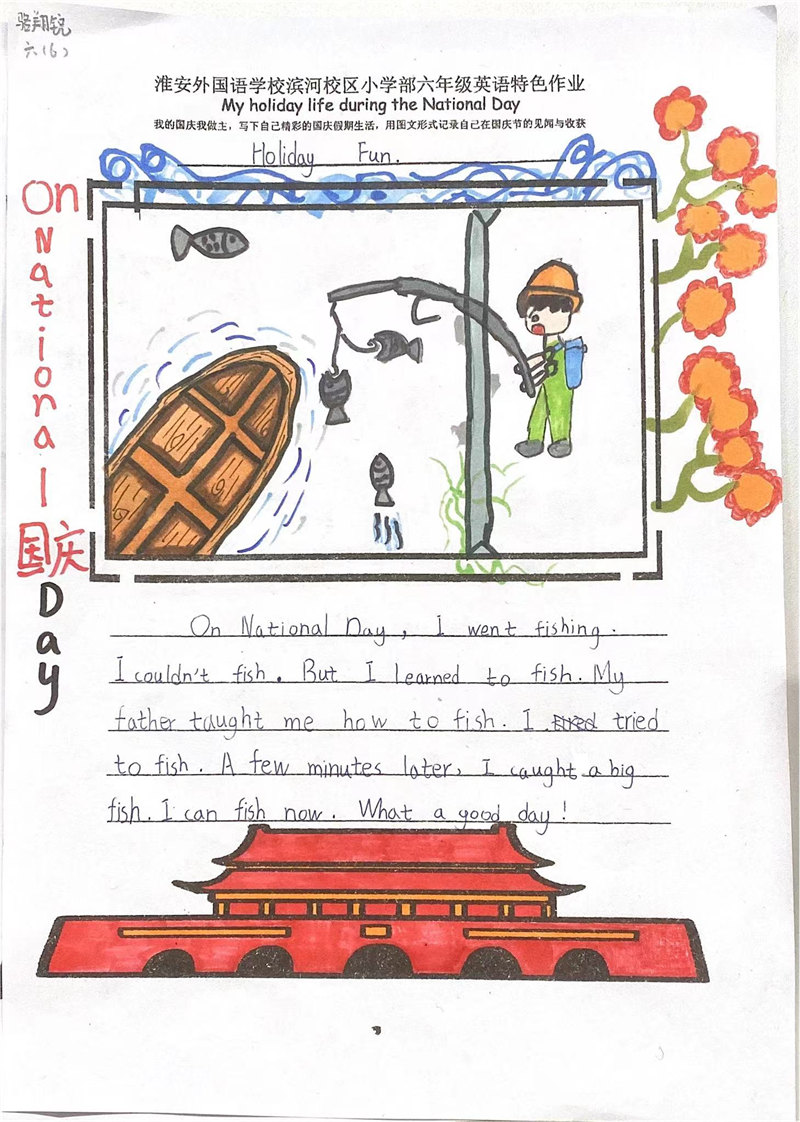 骆翔锐
六(6)
淮安外国语学校滨河校区小学部六年级英语特色作业
My holiday life during the National Day
我的国庆我做主，写下自己精彩的国庆假期生活，用图文形式记录自己在国庆节的见闻与收获
Holiday Fun.
On
National
国庆
Day
On National Day, I went fishing.
I couldn't fish. But I learned to fish. My
father taught me how to fish. I tried
to fish. A few minutes later, I caught a big
fish. I can fish now. What a good day!